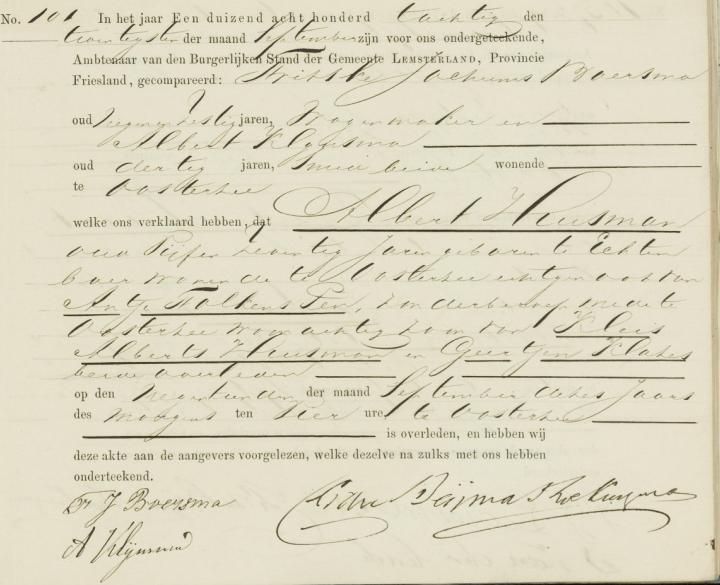 No. 101 In het jaar Een duizend acht honderd tachtig den
twintigsten der maand September zijn voor ons ondergeteekende,
Ambtenaar van den Burgerlijken Stand der Gemeente LEMSTERLAND, Provincie
Friesland, gecompareerd: Jochums Boersma
oud jaren, Wagenmaker en
Albert
oud dertig jaren, beide wonende
te Oosterzee
welke ons verklaard hebben, dat Albert Huisman
oud Vijfen zeventig Jaren geboren te Echten
boer wonende te Oosterzee echtgenoot van
Antje Folkens Pen, zonder beroep mede te
Oosterzee woonachtig zoon van Klaas
Alberts Huisman en Geertjen Klazes
beide overleden
op den Negentienden der maand September dezes Jaars
des morgens ten vier ure, te Oosterzee
is overleden, en hebben wij
deze akte aan de aangevers voorgelezen, welke dezelve na zulks met ons hebben
onderteekend.
J Boersma
A